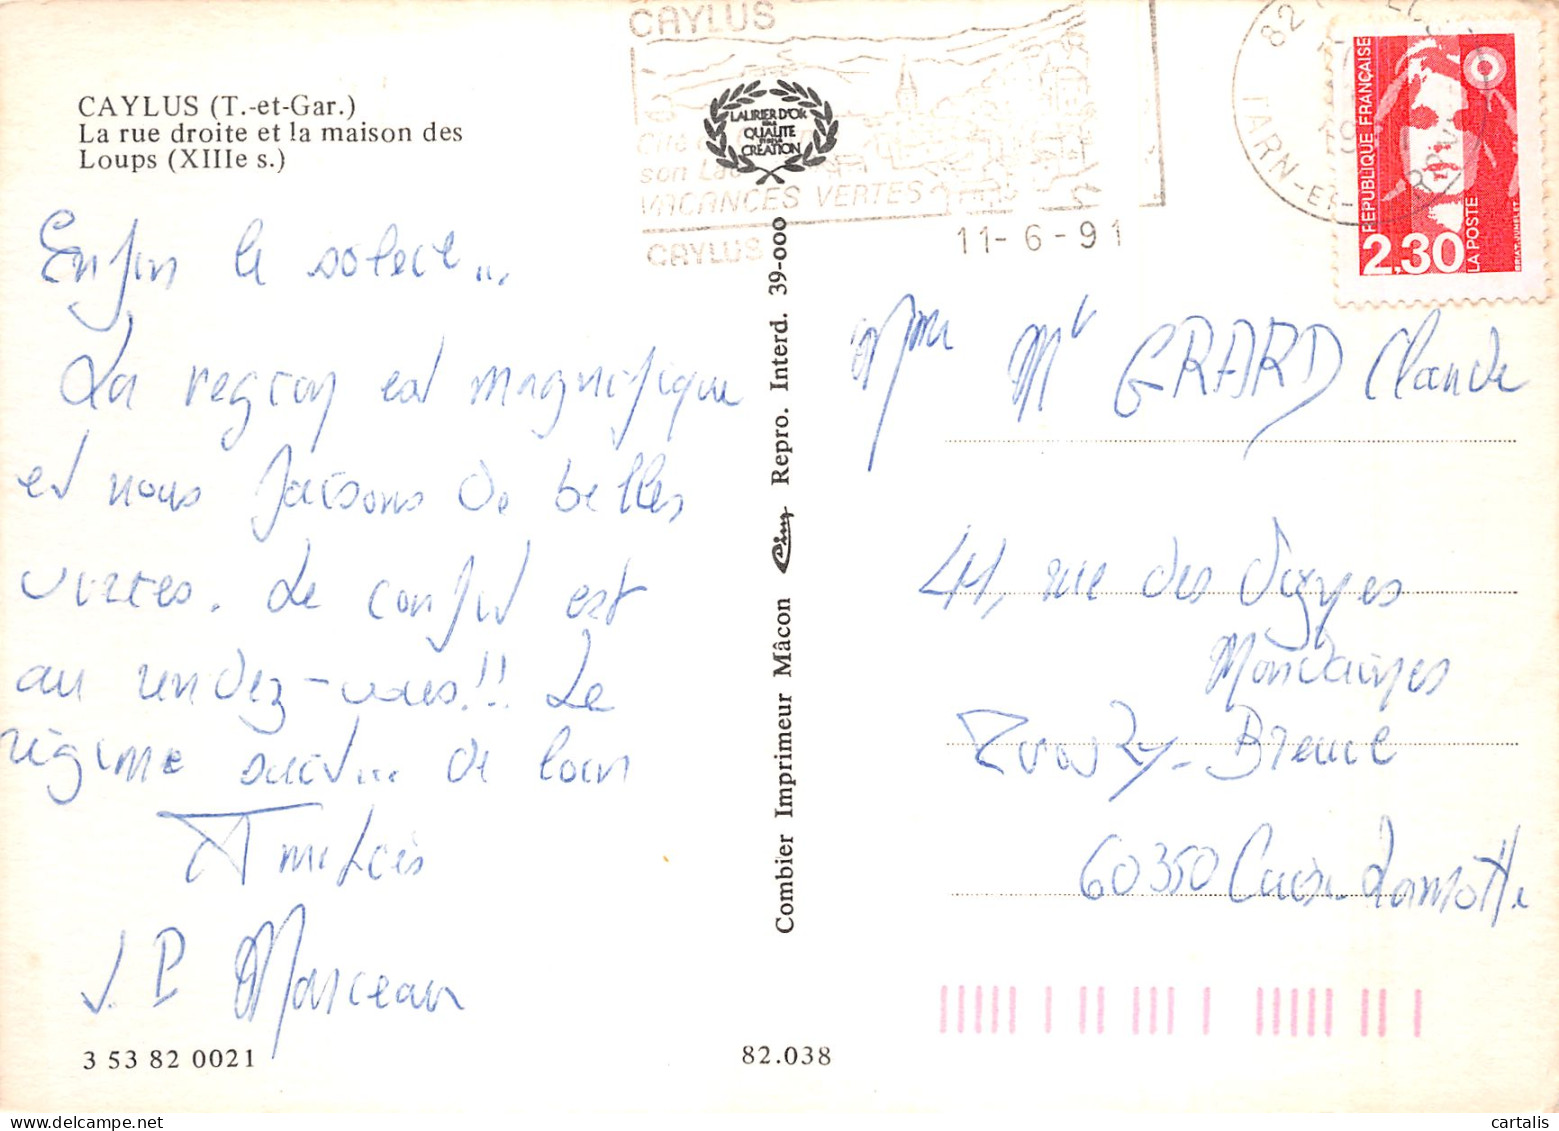 CAYLUS (T.-et-Gar.)
La rue droite et la maison des
Loups (XIIIe s.)
Enfin le soleil...
La region est magnifique
et nous faisons de belles
virées. Le confit est
au rendez-vous!! Le
régime suit... de loin
Amitiés
J.P Marceau
3 53 82 0021
82.038
Combier Imprimeur Mâcon Cim Repro. Interd. 39-000
CAYLUS
LAURIER D'OR
QUALITE
CREATION
son
VACANCES VERTES
CAYLUS
11-6-91
82
TARN-ET-
REPUBLIQUE FRANÇAISE
2,30
LA POSTE
BRIAT-JUMELET
Mme Mr GRARD Claude
41, rue des Vignes
Mondaines
Breuil
60350 Cuise Lamotte
cartalis